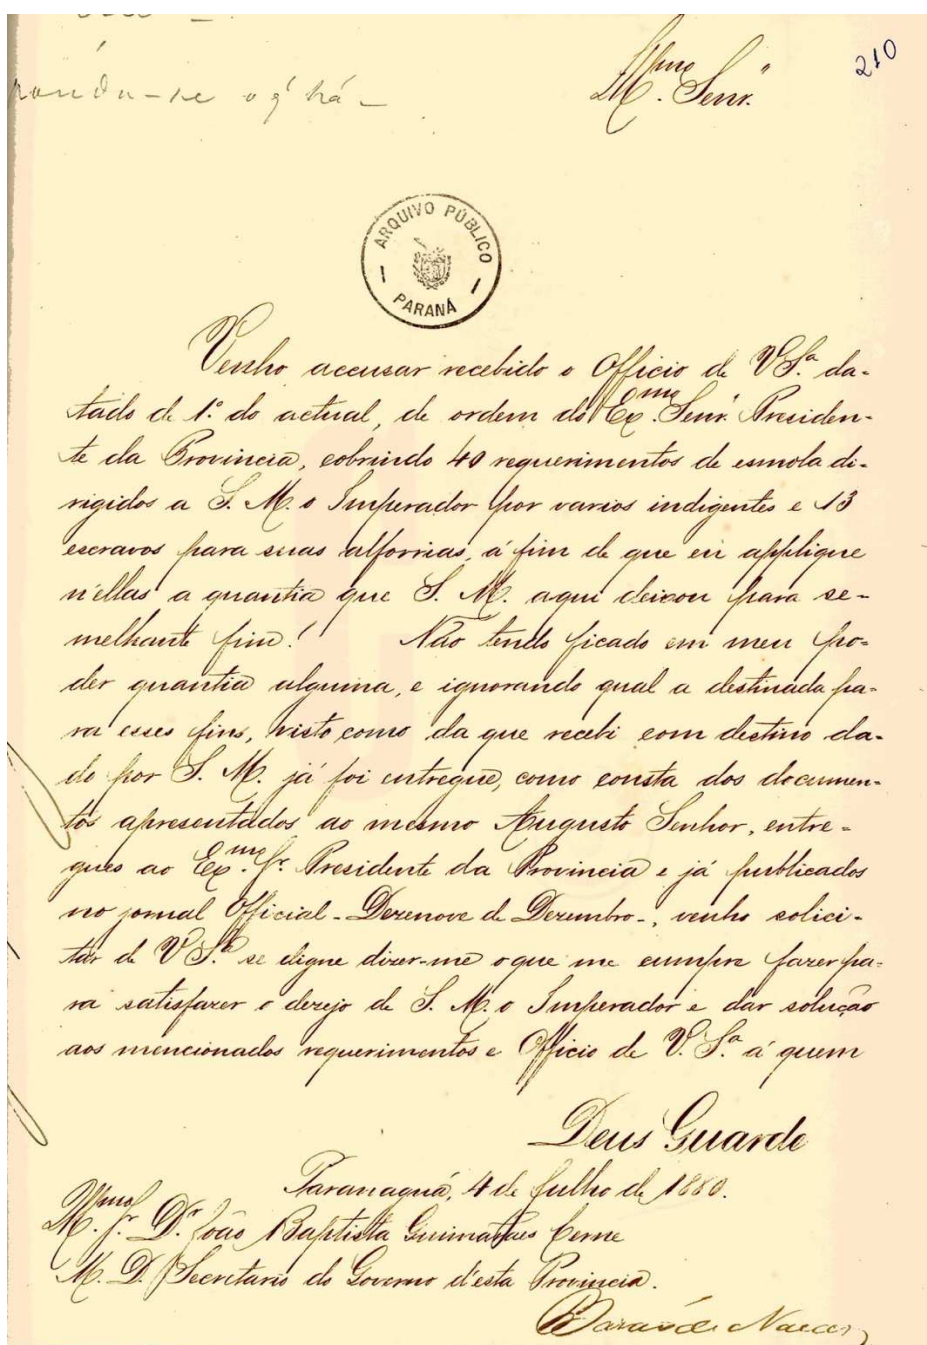 210
Illmo. Senr.
ponda-se o q' há -
ARQUIVO PÚBLICO
PARANÁ
Venho accusar recebido o Officio de V Sª. da-
tado de 1º. do actual, de ordem do Exmo. Senr. Presiden-
te da Provincia, cobrindo 40 requerimentos de esmola di-
rigidos a S. M. o Imperador por varios indigentes e 13
escravos para suas alforrias, á fim de que eu applique
n'ellas a quantia que S. M. aqui deixou para se-
melhante fim! Não tendo ficado em meu po-
der quantia alguma, e ignorando qual a destinada pa-
ra esses fins, visto como da que recebi com destino da-
do por S. M. já foi entregue, como consta dos documen-
tos apresentados ao mesmo Augusto Senhor, entre-
gues ao Exmo. Sr. Presidente da Provincia e já publicados
no jornal Official - Dezenove de Dezembro -, venho solici-
tar de V Sª. se digne dizer-me o que me cumpre fazer pa-
ra satisfazer o dezejo de S. M. o Imperador e dar solução
aos mencionados requerimentos e Officio de V. Sª. á quem
Deus Guarde
Paranaguá, 4 de Julho de 1880.
Illmo. Sr. Dr. João Baptista Guimarães Cerne
M. D. Secretario do Governo d'esta Provincia.
Barão de Nacar